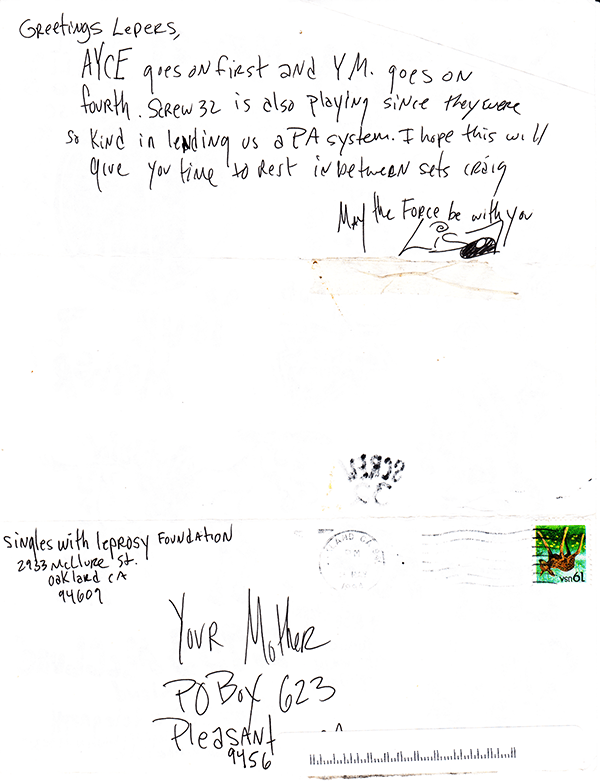 Greetings Lepers,
AYCE goes on first and Y.M. goes on
fourth. Screw 32 is also playing since they were
so kind in lending us a PA system. I hope this will
give you time to rest in between sets craig
May the Force be with you
Lisa
SCREW
32
Singles with Leprosy Foundation
2933 McClure St.
Oakland CA
94609
19USA
Your Mother
PO Box 623
Pleasant
9456